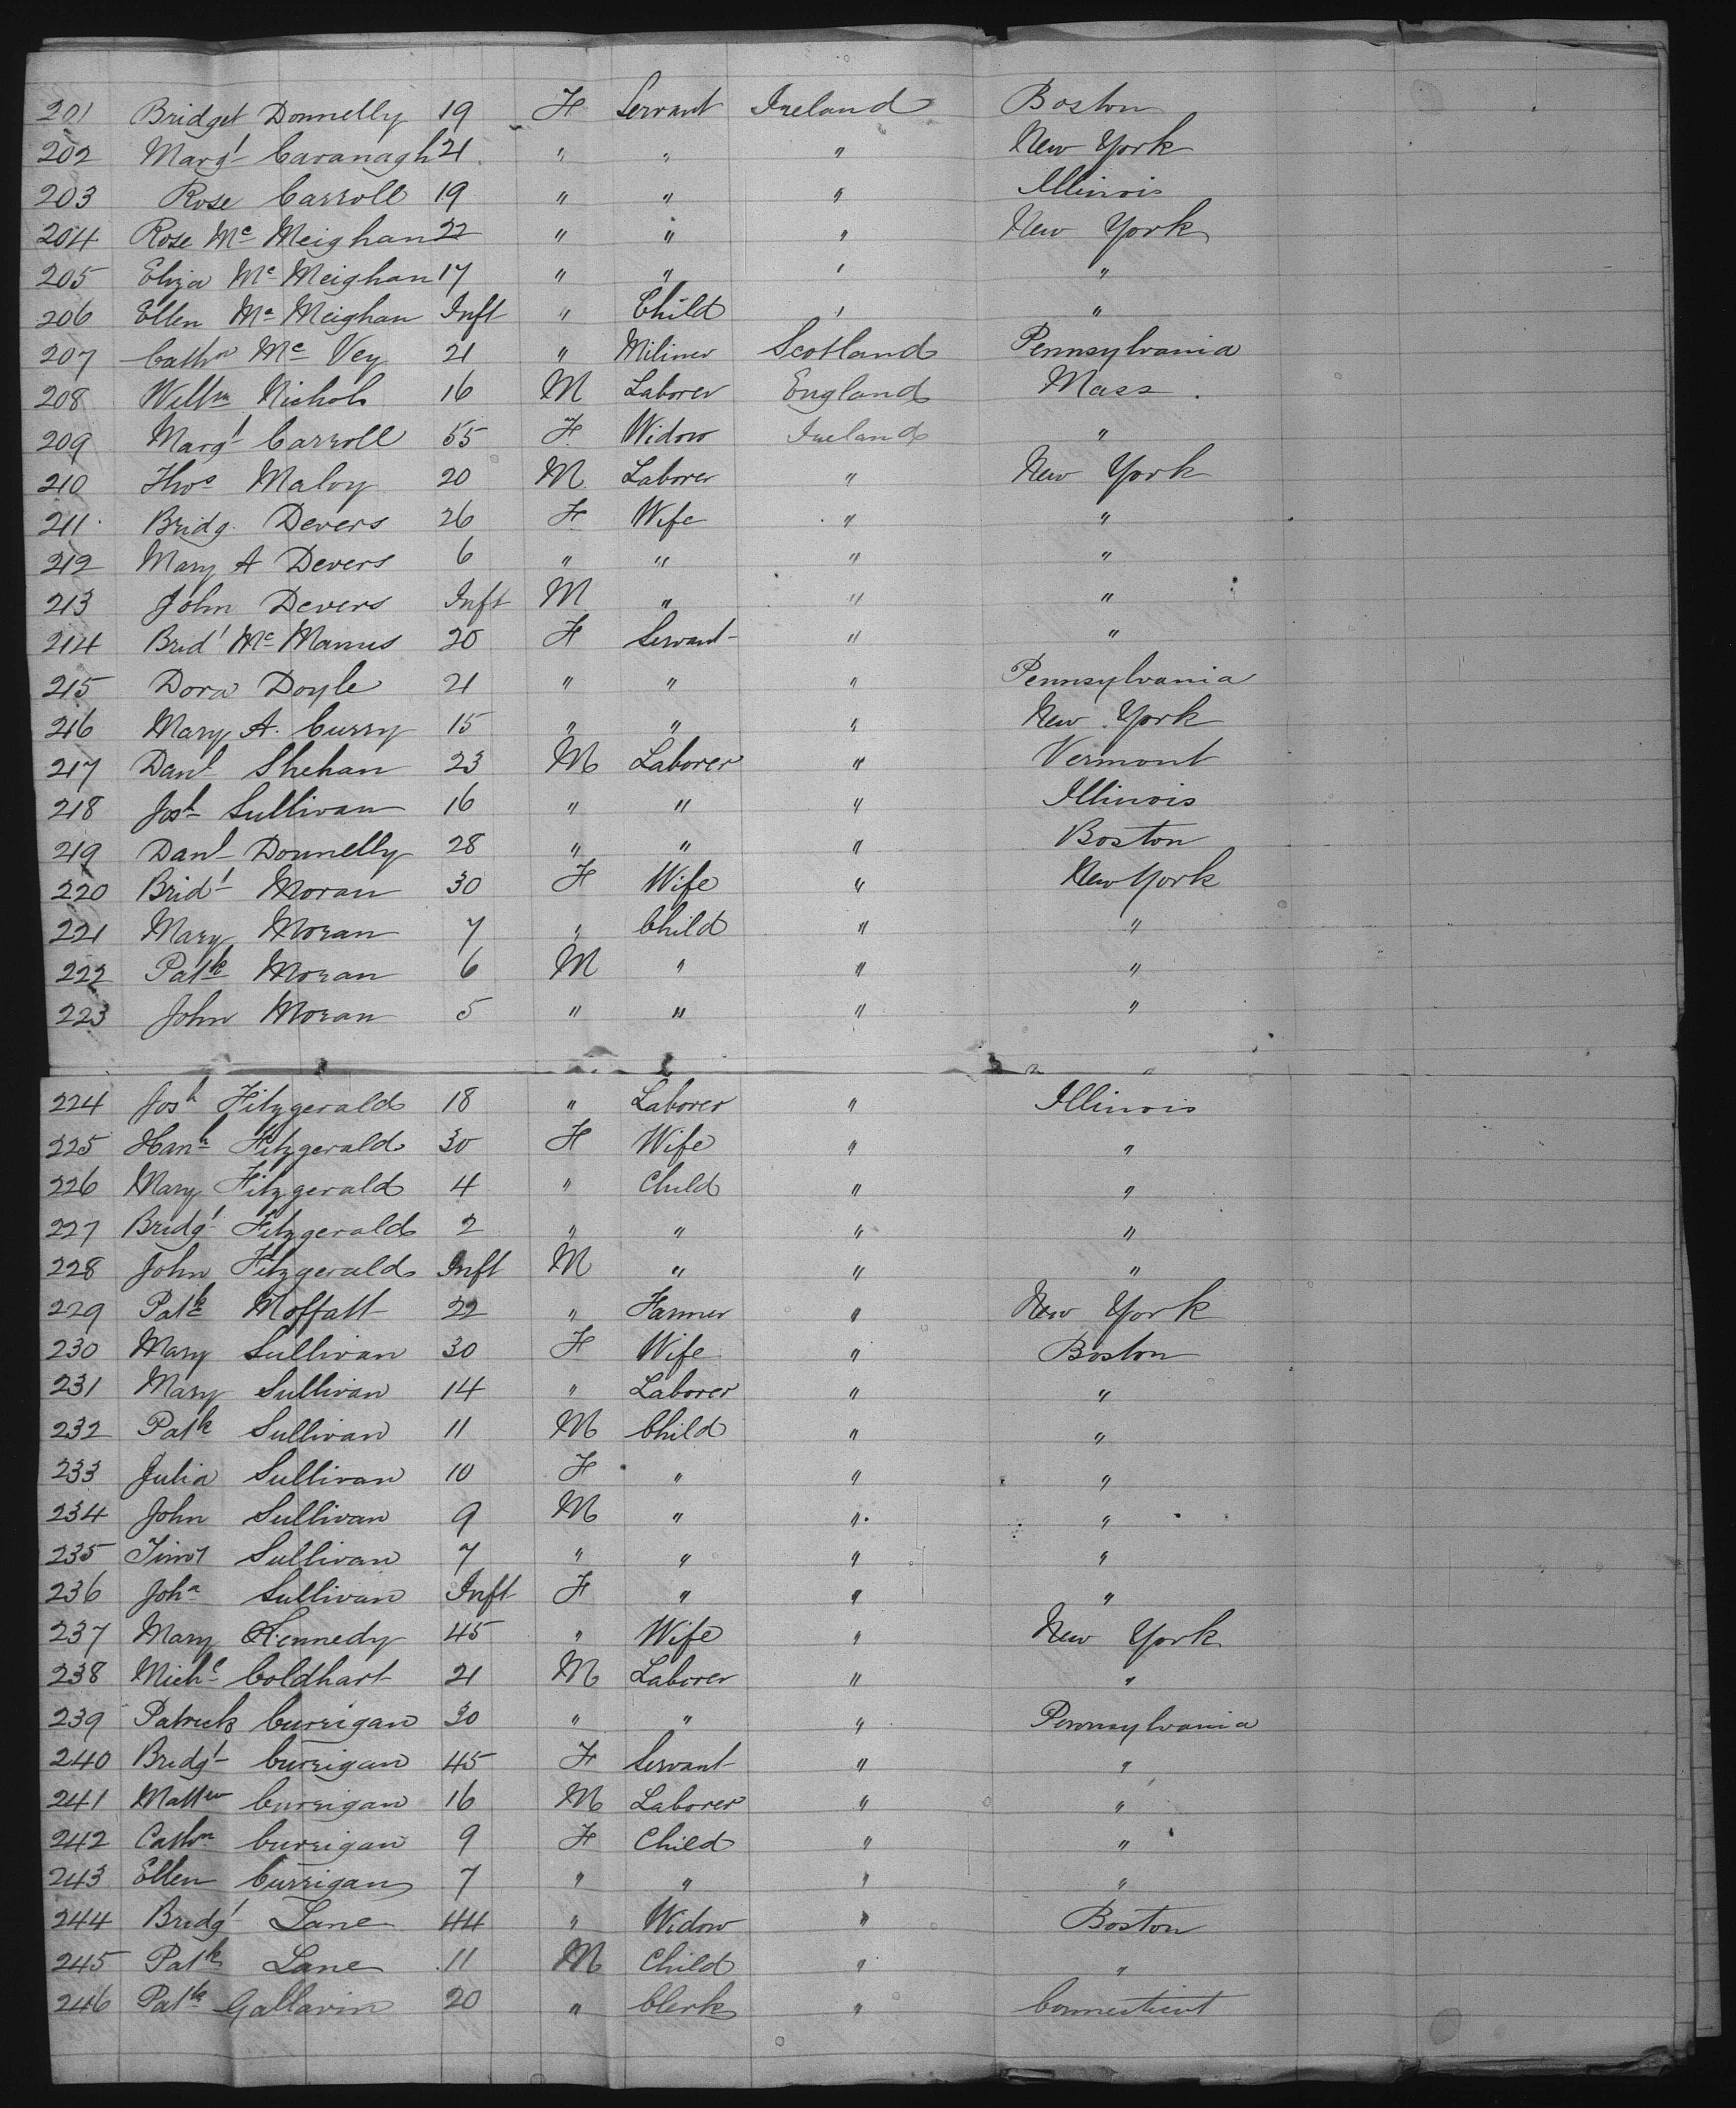 201 Bridget Donnelly 19 F Servant Ireland Boston
202 Margt Cavanagh 21 " " " New York
203 Rose Carroll 19 " " " Illinois
204 Rose Mc Meighan 22 " " " New York
205 Eliza Mc Meighan 17 " " " "
206 Ellen Mc Meighan Inft " Child " "
207 Cathn Mc Vey 21 " Miliner Scotland Pennsylvania
208 Willm Nichols 16 M Laborer England Mass.
209 Margt Carroll 55 F Widow Ireland "
210 Thos Maloy 20 M Laborer " New York
211 Bridg. Devers 26 F Wife " "
212 Mary A Devers 6 " " " "
213 John Devers Inft M " " "
214 Bridt Mc Manus 20 F Servant " "
215 Dora Doyle 21 " " " Pennsylvania
216 Mary A. Curry 15 " " " New York
217 Danl Shehan 23 M Laborer " Vermont
218 Josh Sullivan 16 " " " Illinois
219 Danl Donnelly 28 " " " Boston
220 Bridt Moran 30 F Wife " New York
221 Mary Moran 7 " Child " "
222 Patk Moran 6 M " " "
223 John Moran 5 " " " "
224 Josh Fitzgerald 18 " Laborer " Illinois
225 Hanh Fitzgerald 30 F Wife " "
226 Mary Fitzgerald 4 " Child " "
227 Bridgt Fitzgerald 2 " " " "
228 John Fitzgerald Inft M " " "
229 Patk Moffatt 22 " Farmer " New York
230 Mary Sullivan 30 F Wife " Boston
231 Mary Sullivan 14 " Laborer " "
232 Patk Sullivan 11 M Child " "
233 Julia Sullivan 10 F " " "
234 John Sullivan 9 M " " "
235 Timoy Sullivan 7 " " " "
236 Joha Sullivan Inft F " " "
237 Mary Kennedy 45 " Wife " New York
238 Michl Coldhart 21 M Laborer " "
239 Patrick Currigan 30 " " " Pennsylvania
240 Bridgt Currigan 45 F Servant " "
241 Mattw Currigan 16 M Laborer " "
242 Cathn Currigan 9 F Child " "
243 Ellen Currigan 7 " " " "
244 Bridgt Lane 44 " Widow " Boston
245 Patk Lane 11 M Child " "
246 Patk Gallavin 20 " Clerk " Connecticut